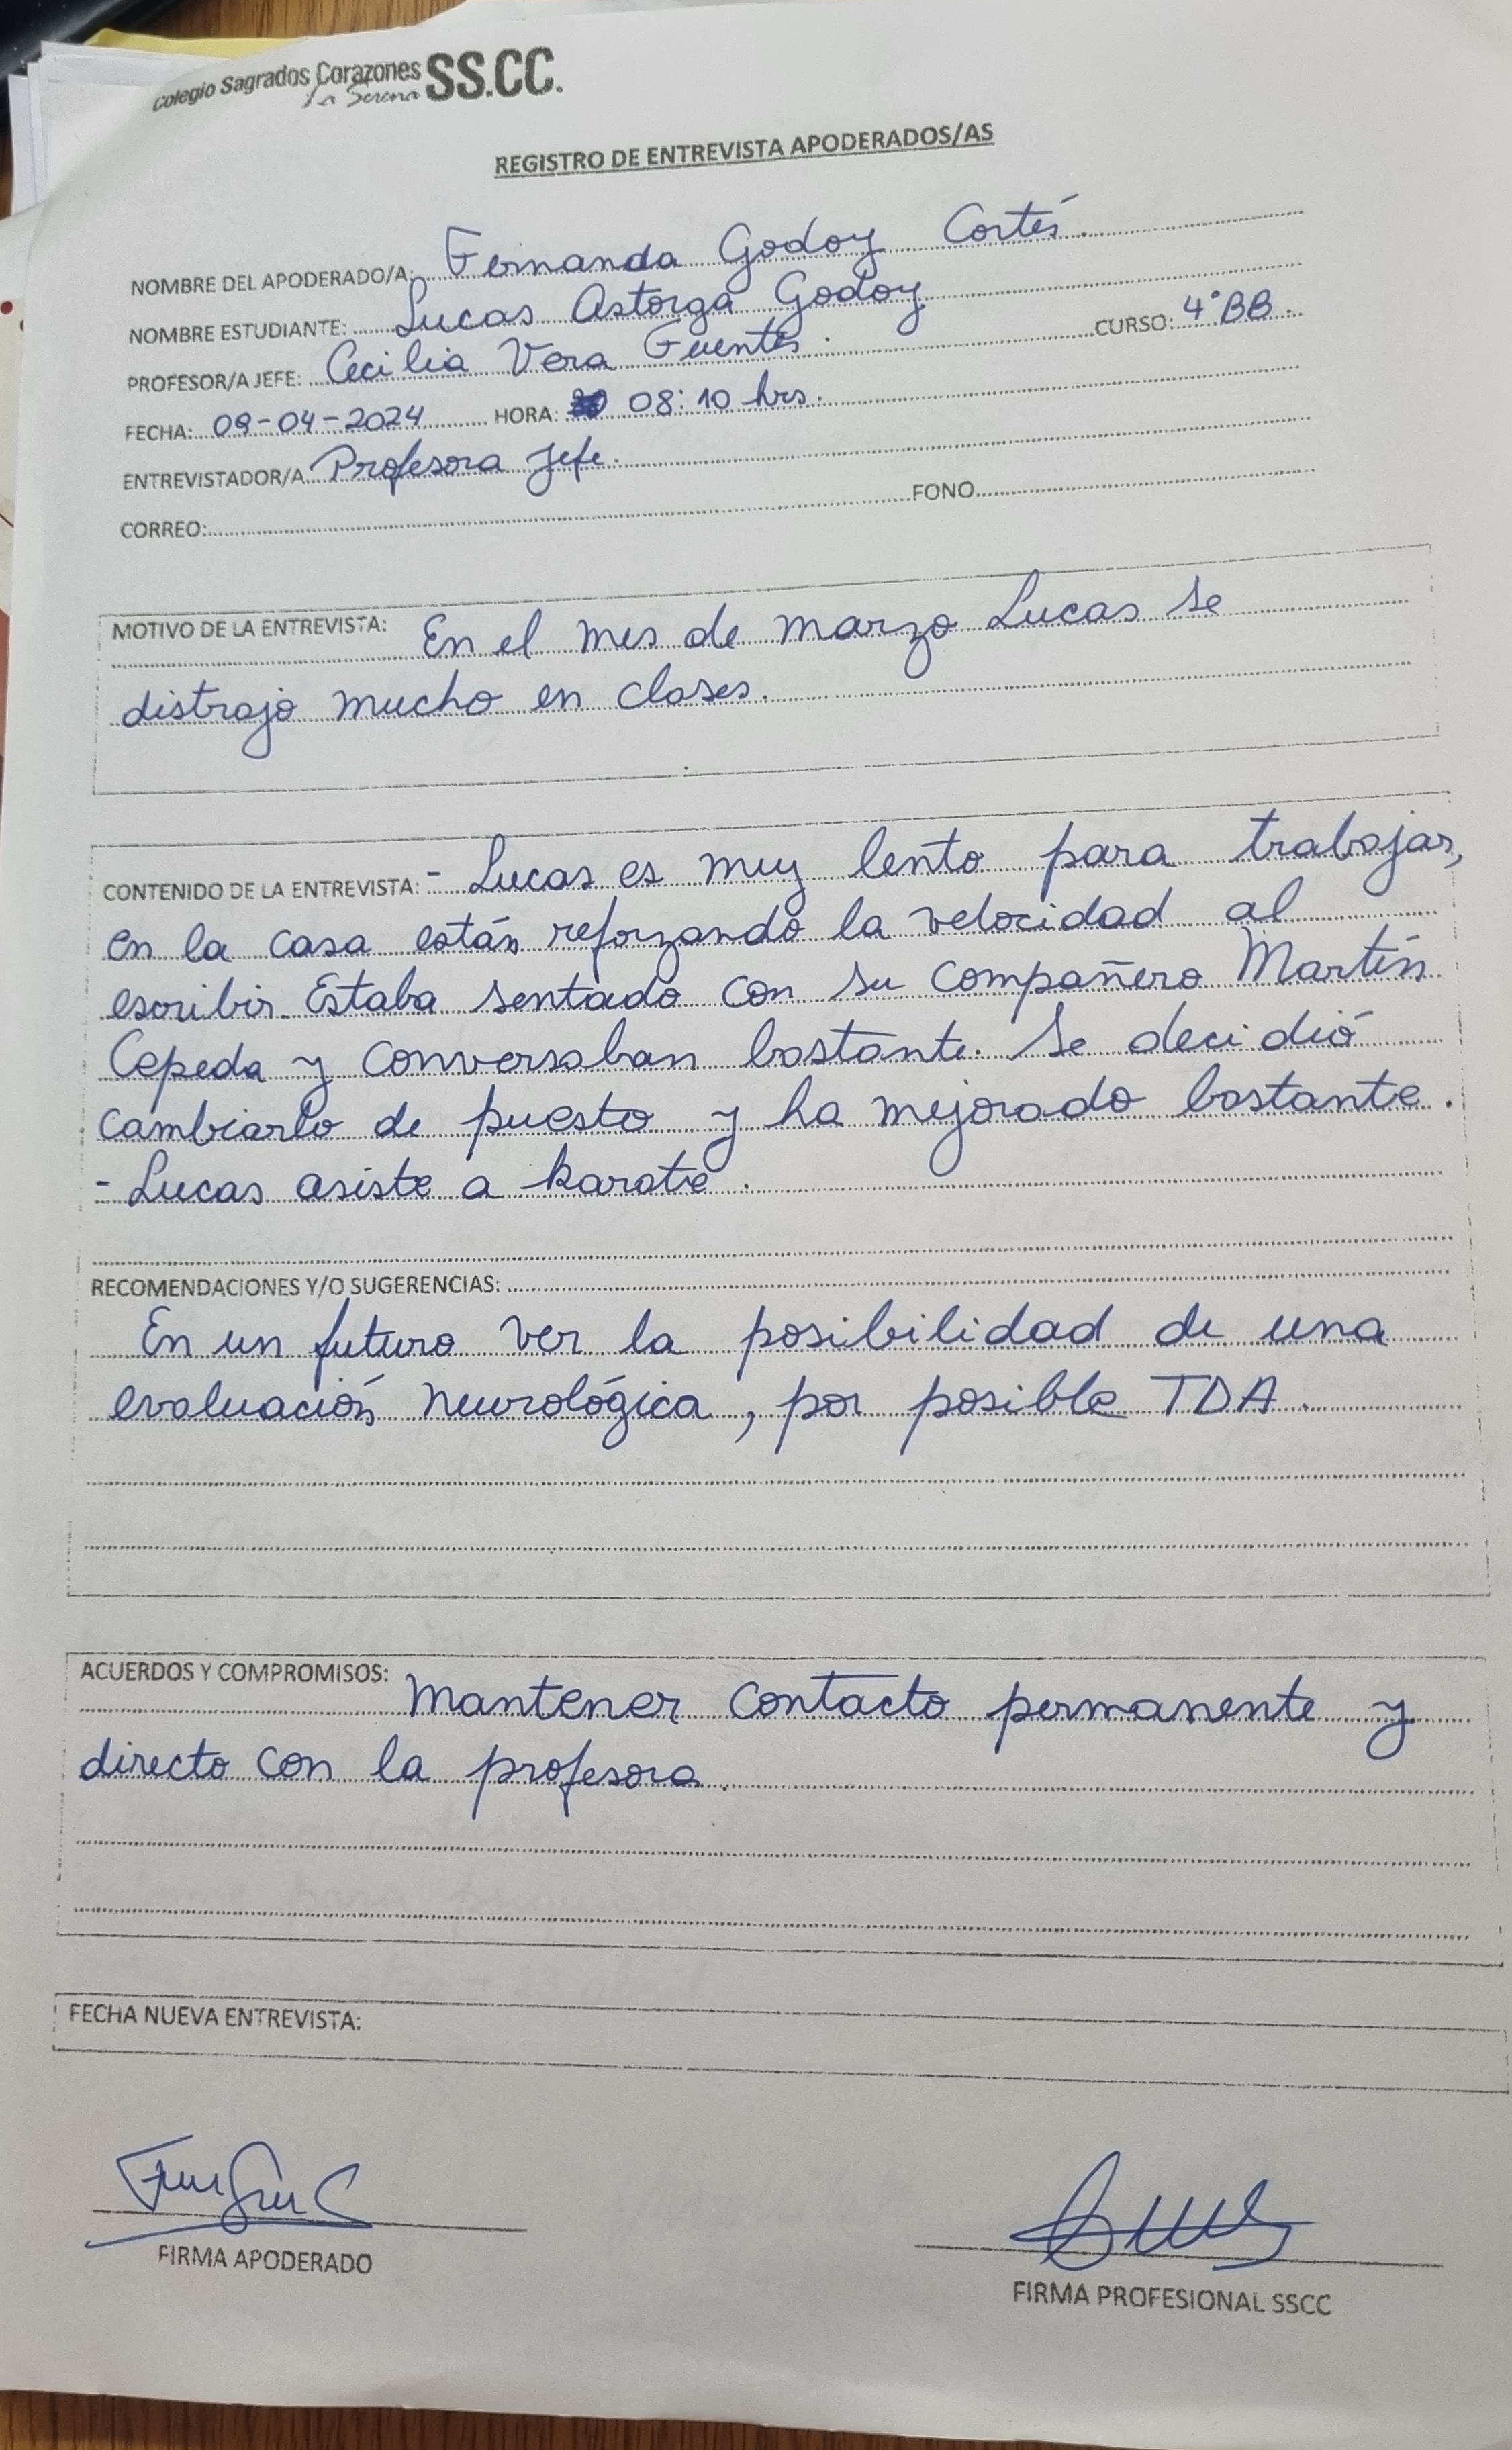 Colegio Sagrados Corazones SS.CC.
La Serena
REGISTRO DE ENTREVISTA APODERADOS/AS
NOMBRE DEL APODERADO/A: Fernanda Godoy Cortés.
NOMBRE ESTUDIANTE: Lucas Astorga Godoy
PROFESOR/A JEFE: Cecilia Vera Fuentes. CURSO: 4°BB.
FECHA: 09-04-2024 HORA: 08:10 hrs.
ENTREVISTADOR/A Profesora Jefe.
CORREO: FONO
MOTIVO DE LA ENTREVISTA: En el mes de marzo Lucas se
distrajo mucho en clases.
CONTENIDO DE LA ENTREVISTA: - Lucas es muy lento para trabajar,
en la casa están reforzando la velocidad al
escribir. Estaba sentado con su compañero Martín
Cepeda y conversaban bastante. Se decidió
cambiarlo de puesto y ha mejorado bastante.
- Lucas asiste a karate.
RECOMENDACIONES Y/O SUGERENCIAS:
En un futuro ver la posibilidad de una
evaluación neurológica, por posible TDA.
ACUERDOS Y COMPROMISOS: Mantener contacto permanente y
directo con la profesora.
FECHA NUEVA ENTREVISTA:
FIRMA APODERADO
FIRMA PROFESIONAL SSCC